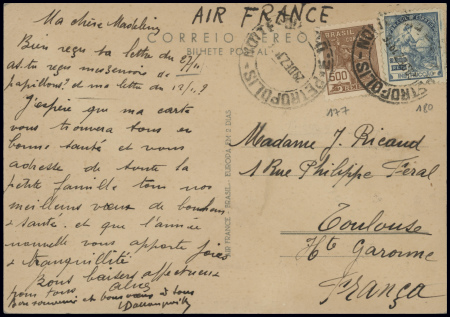 AIR FRANCE
CORREIO AEREO
BILHETE POSTAL
Ma chère Madeleine
Bien reçu ta lettre du
as-tu reçu mes envois de
papillons? et ma lettre du
J'espère que ma carte
vous trouvera tous en
bonne santé et vous
adresse de toute la
petite famille tous nos
meilleurs vœux de bonheur
+ santé. et que l'année
nouvelle vous apporte joies
+ tranquillité
Bons baisers affectueux
pour tous
Bon souvenir et bons vœux à tous
AIR FRANCE - BRASIL - EUROPA EM 2 DIAS
PETROPOLIS
500
177
180
Madame J. Ricaud
1 Rue Philippe Féral
Toulouse
Hte Garonne
França